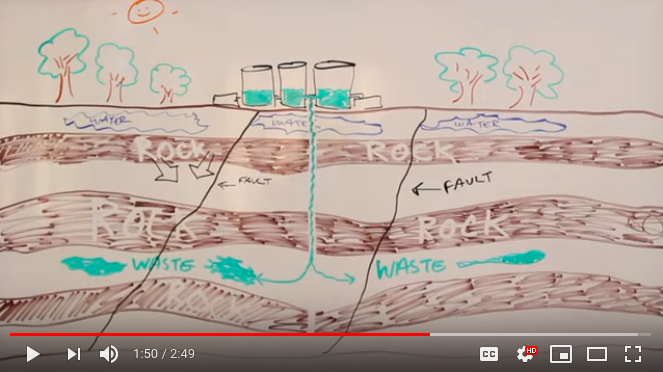 WATER WATER WATER
ROCK ROCK
FAULT FAULT
ROCK ROCK
WASTE WASTE
1:50 / 2:49 CC HD